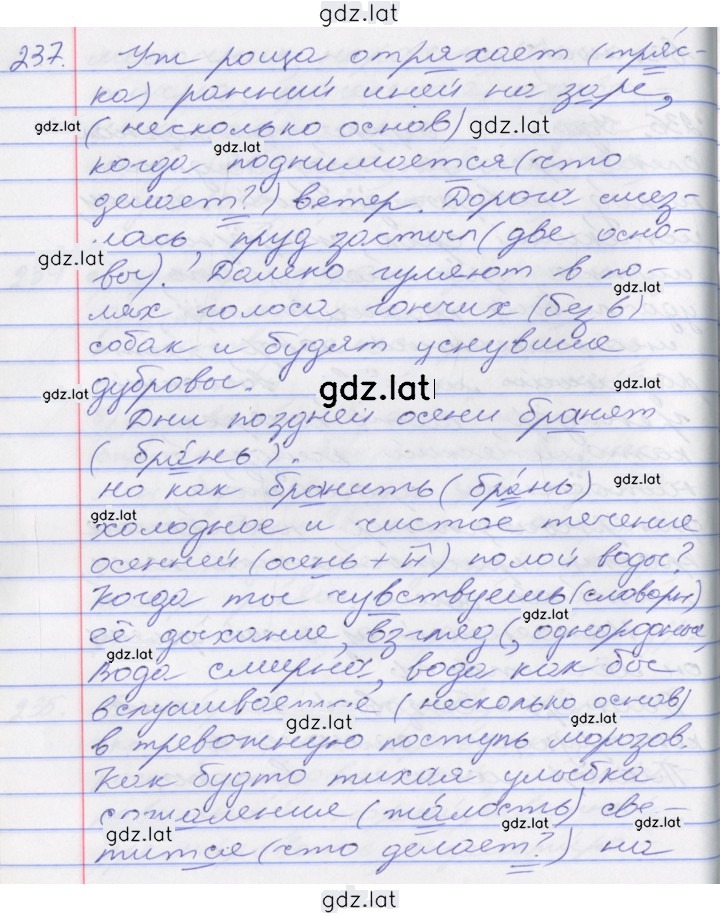 gdz.lat
237. Уж роща отряхает (тряс-
ка) ранний иней на заре,
gdz.lat
(несколько основ) gdz.lat
gdz.lat
когда поднимается (что
делает?) ветер. Дорога смёрз-
лась, пруд застыл (две осно-
gdz.lat
вы). Далеко гуляют в по-
gdz.lat
лях голоса гончих (без ь)
собак и будят уснувшие
дубровы.
gdz.lat gdz.lat gdz.lat
Дни поздней осени бранят
(бра́нь).
но как бранить (бра́нь) gdz.lat
gdz.lat
холодное и чистое течение
осенней (осень + н) полой воды?
Когда ты чувствуешь (словарн)
gdz.lat
её дыхание, взгляд (, однородные,
gdz.lat
вода смирна, вода как бы
вслушивается (несколько основ)
gdz.lat gdz.lat
в тревожную поступь морозов.
Как будто тихая улыбка
сожаления (жа́лость) све-
gdz.lat gdz.lat gdz.lat
тится (что делает?) на
gdz.lat